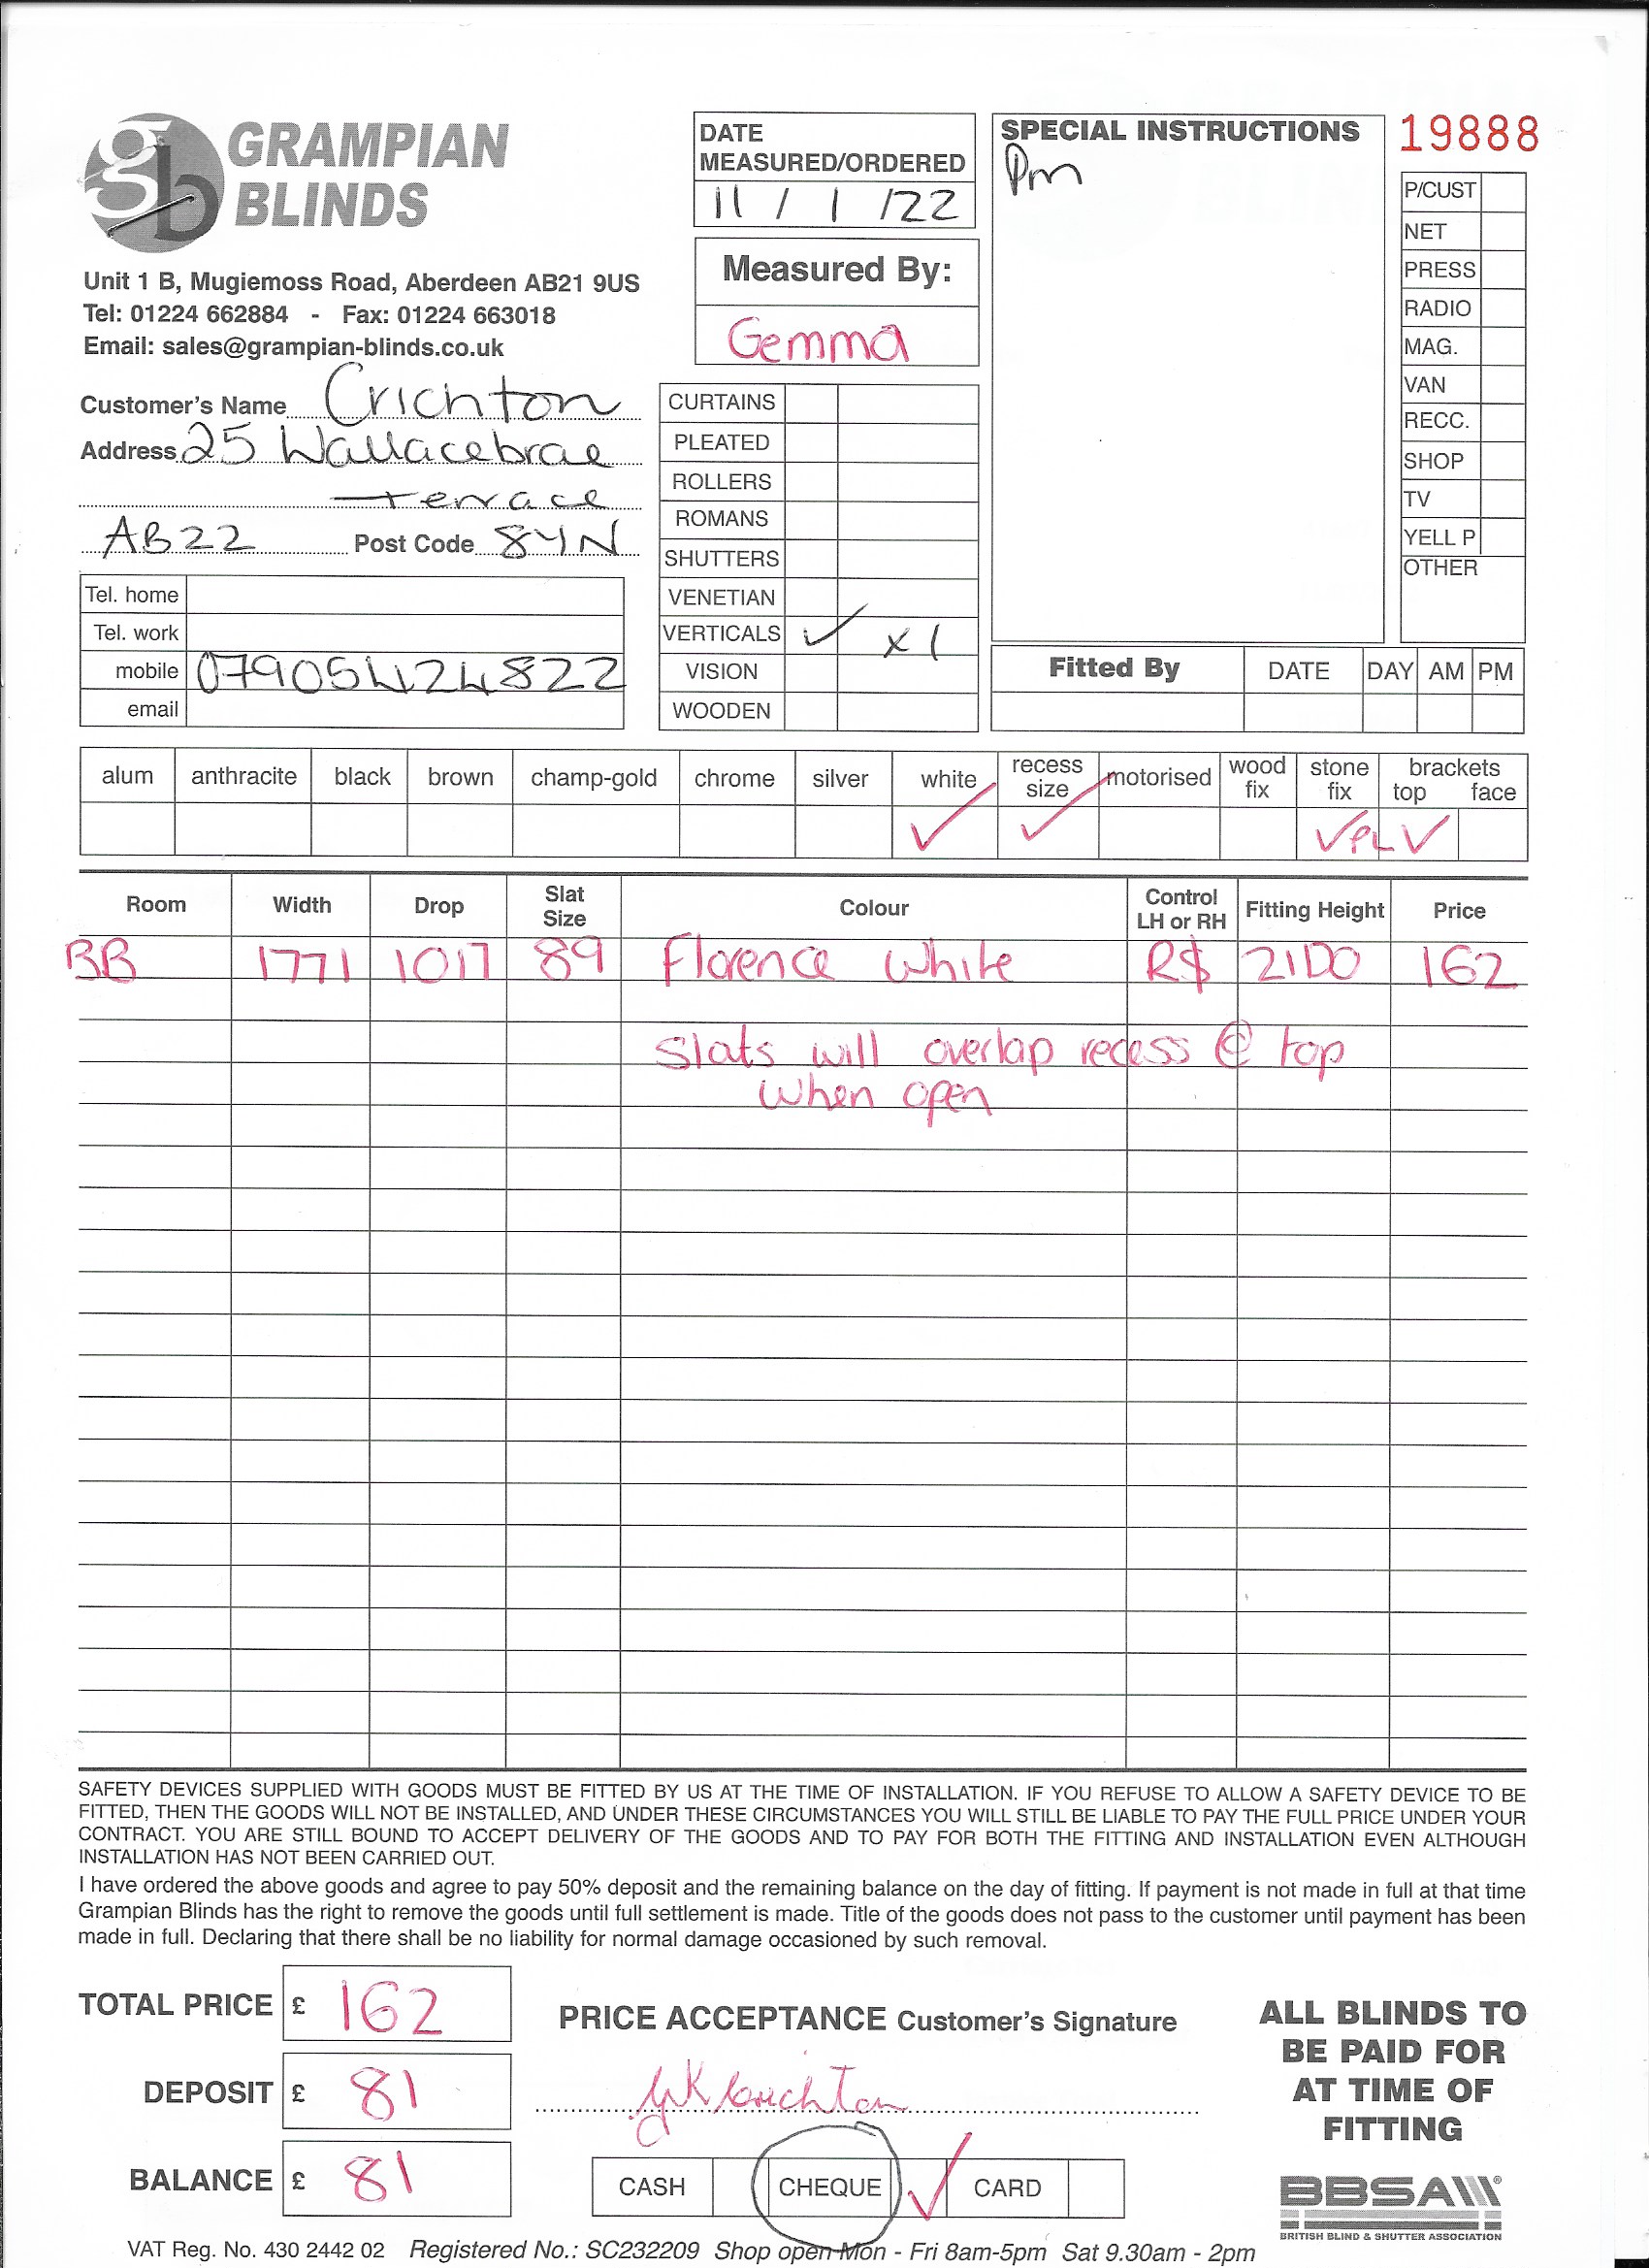 gb GRAMPIAN
BLINDS
Unit 1 B, Mugiemoss Road, Aberdeen AB21 9US
Tel: 01224 662884 - Fax: 01224 663018
Email: sales@grampian-blinds.co.uk
Customer's Name Crichton
Address 25 Wallacebrae
terrace
AB22 Post Code 8YN
Tel. home
Tel. work
mobile 07905424822
email
DATE
MEASURED/ORDERED
11 / 1 /22
Measured By:
Gemma
CURTAINS
PLEATED
ROLLERS
ROMANS
SHUTTERS
VENETIAN
VERTICALS ✓ x1
VISION
WOODEN
SPECIAL INSTRUCTIONS
Pm
19888
P/CUST
NET
PRESS
RADIO
MAG.
VAN
RECC.
SHOP
TV
YELL P
OTHER
Fitted By DATE DAY AM PM
alum anthracite black brown champ-gold chrome silver white recess size motorised wood fix stone fix brackets top face
✓ ✓ ✓ PL ✓
Room Width Drop Slat Size Colour Control LH or RH Fitting Height Price
BB 1771 1017 89 Florence White R$ 2100 162
Slats will overlap recess @ top
when open
SAFETY DEVICES SUPPLIED WITH GOODS MUST BE FITTED BY US AT THE TIME OF INSTALLATION. IF YOU REFUSE TO ALLOW A SAFETY DEVICE TO BE
FITTED, THEN THE GOODS WILL NOT BE INSTALLED, AND UNDER THESE CIRCUMSTANCES YOU WILL STILL BE LIABLE TO PAY THE FULL PRICE UNDER YOUR
CONTRACT. YOU ARE STILL BOUND TO ACCEPT DELIVERY OF THE GOODS AND TO PAY FOR BOTH THE FITTING AND INSTALLATION EVEN ALTHOUGH
INSTALLATION HAS NOT BEEN CARRIED OUT.
I have ordered the above goods and agree to pay 50% deposit and the remaining balance on the day of fitting. If payment is not made in full at that time
Grampian Blinds has the right to remove the goods until full settlement is made. Title of the goods does not pass to the customer until payment has been
made in full. Declaring that there shall be no liability for normal damage occasioned by such removal.
TOTAL PRICE £ 162
DEPOSIT £ 81
BALANCE £ 81
PRICE ACCEPTANCE Customer's Signature
Crichton
CASH CHEQUE ✓ CARD
ALL BLINDS TO
BE PAID FOR
AT TIME OF
FITTING
BBSA
BRITISH BLIND & SHUTTER ASSOCIATION
VAT Reg. No. 430 2442 02 Registered No.: SC232209 Shop open Mon - Fri 8am-5pm Sat 9.30am - 2pm